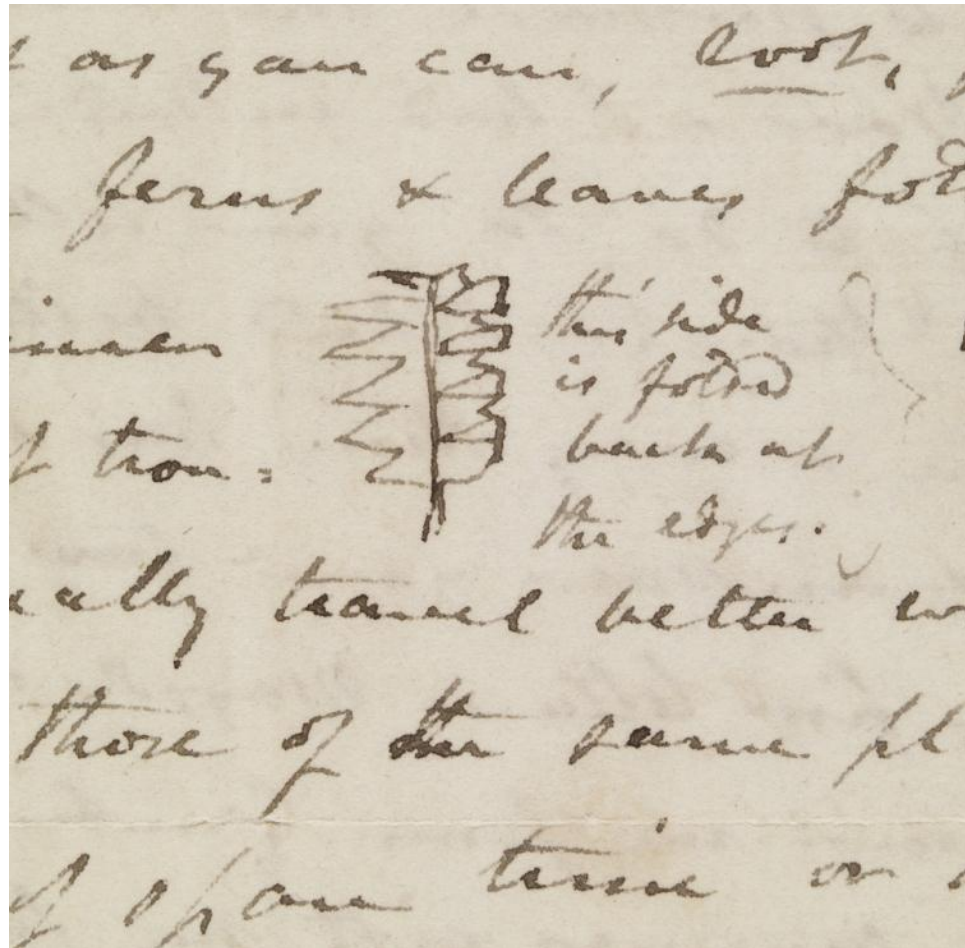 as you can, root,
ferns & leaves fold
this side
is folded
back at
the edges.
of trou=
ually travel better
those of the same pl
of span time or